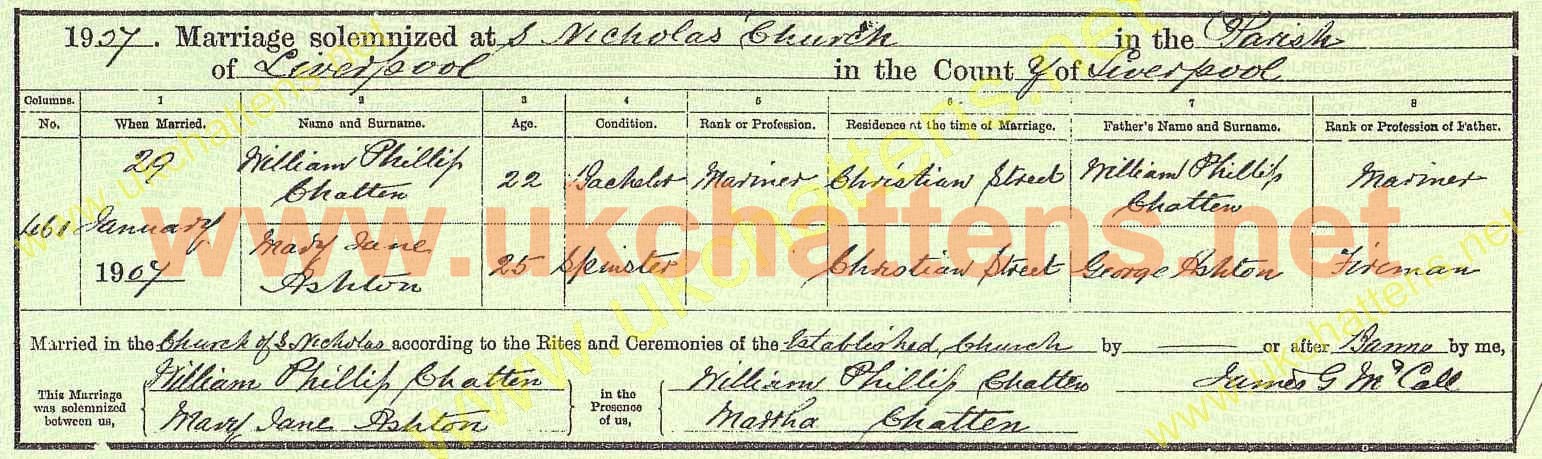 1907. Marriage solemnized at S Nicholas Church in the Parish
of Liverpool in the County of Liverpool
Columns. 1 2 3 4 5 6 7 8
No. When Married. Name and Surname. Age. Condition. Rank or Profession. Residence at the time of Marriage. Father's Name and Surname. Rank or Profession of Father.
29 William Phillip Chatten 22 Bachelor Mariner Christian Street William Phillip Chatten Mariner
461 January
1907 Mary Jane Ashton 25 Spinster Christian Street George Ashton Fireman
www.ukchattens.net
Married in the Church of S Nicholas according to the Rites and Ceremonies of the Established Church by — or after Banns by me,
This Marriage was solemnized between us, William Phillip Chatten in the Presence of us, William Phillip Chatten James G McCall
Mary Jane Ashton Martha Chatten
www.ukchattens.net
www.ukchattens.net
www.ukchattens.net